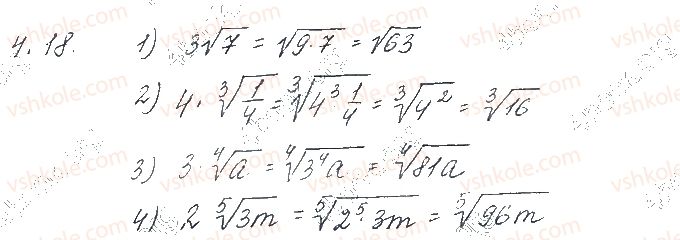 4.18. 1) 3√7 = √(9·7) = √63
2) 4·∛(1/4) = ∛(4³ 1/4) = ∛(4²) = ∛16
3) 3·⁴√a = ⁴√(3⁴a) = ⁴√(81a)
4) 2 ⁵√(3m) = ⁵√(2⁵·3m) = ⁵√(96m)
vshkole.com